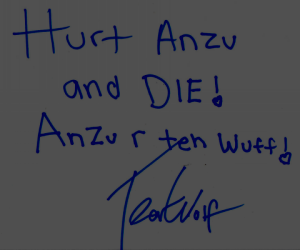 Hurt Anzu
and DIE!
Anzu r ten Wuff!
TearWolf